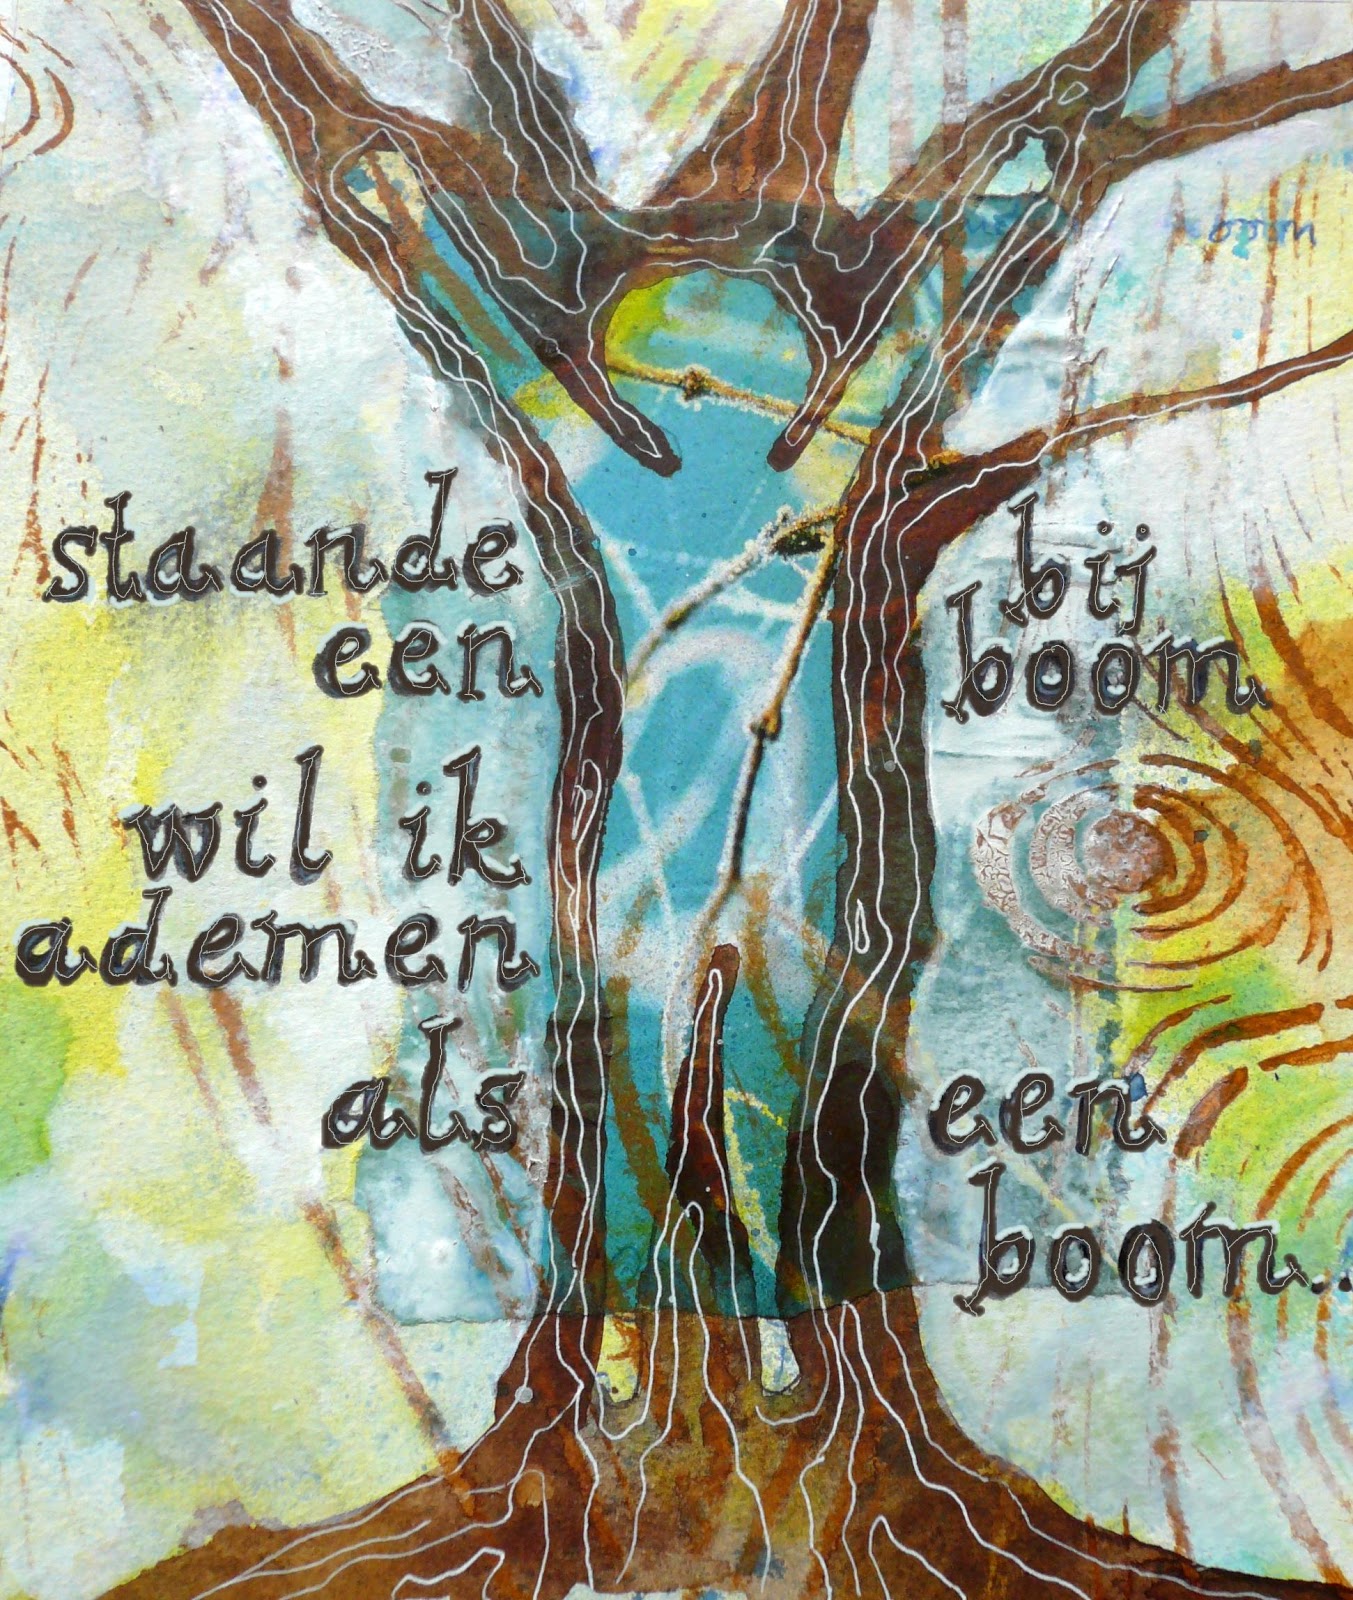 staande bij
een boom
wil ik
ademen
als een
boom...